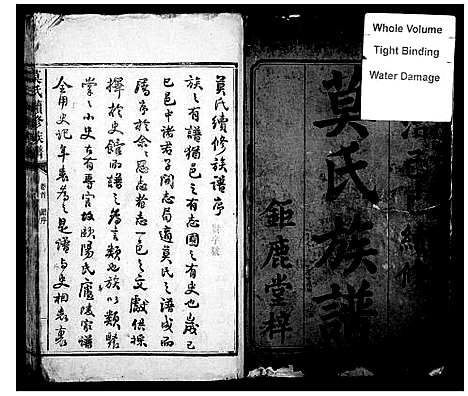 Whole Volume
Tight Binding
Water Damage
莫氏族譜
鉅鹿堂梓
莫氏續修族譜序
族之有譜猶邑之有志國之有史也歲己
巳邑中諸君子開志局適莫氏之譜成而
屬序於余
志者志一邑之文獻供採
擇於史館而譜之為言類也族以類聚
掌之小史古有專官故歐陽氏廬陵家譜
全用史記年表為之是譜與史相表裏
莫氏續修族譜
卷首